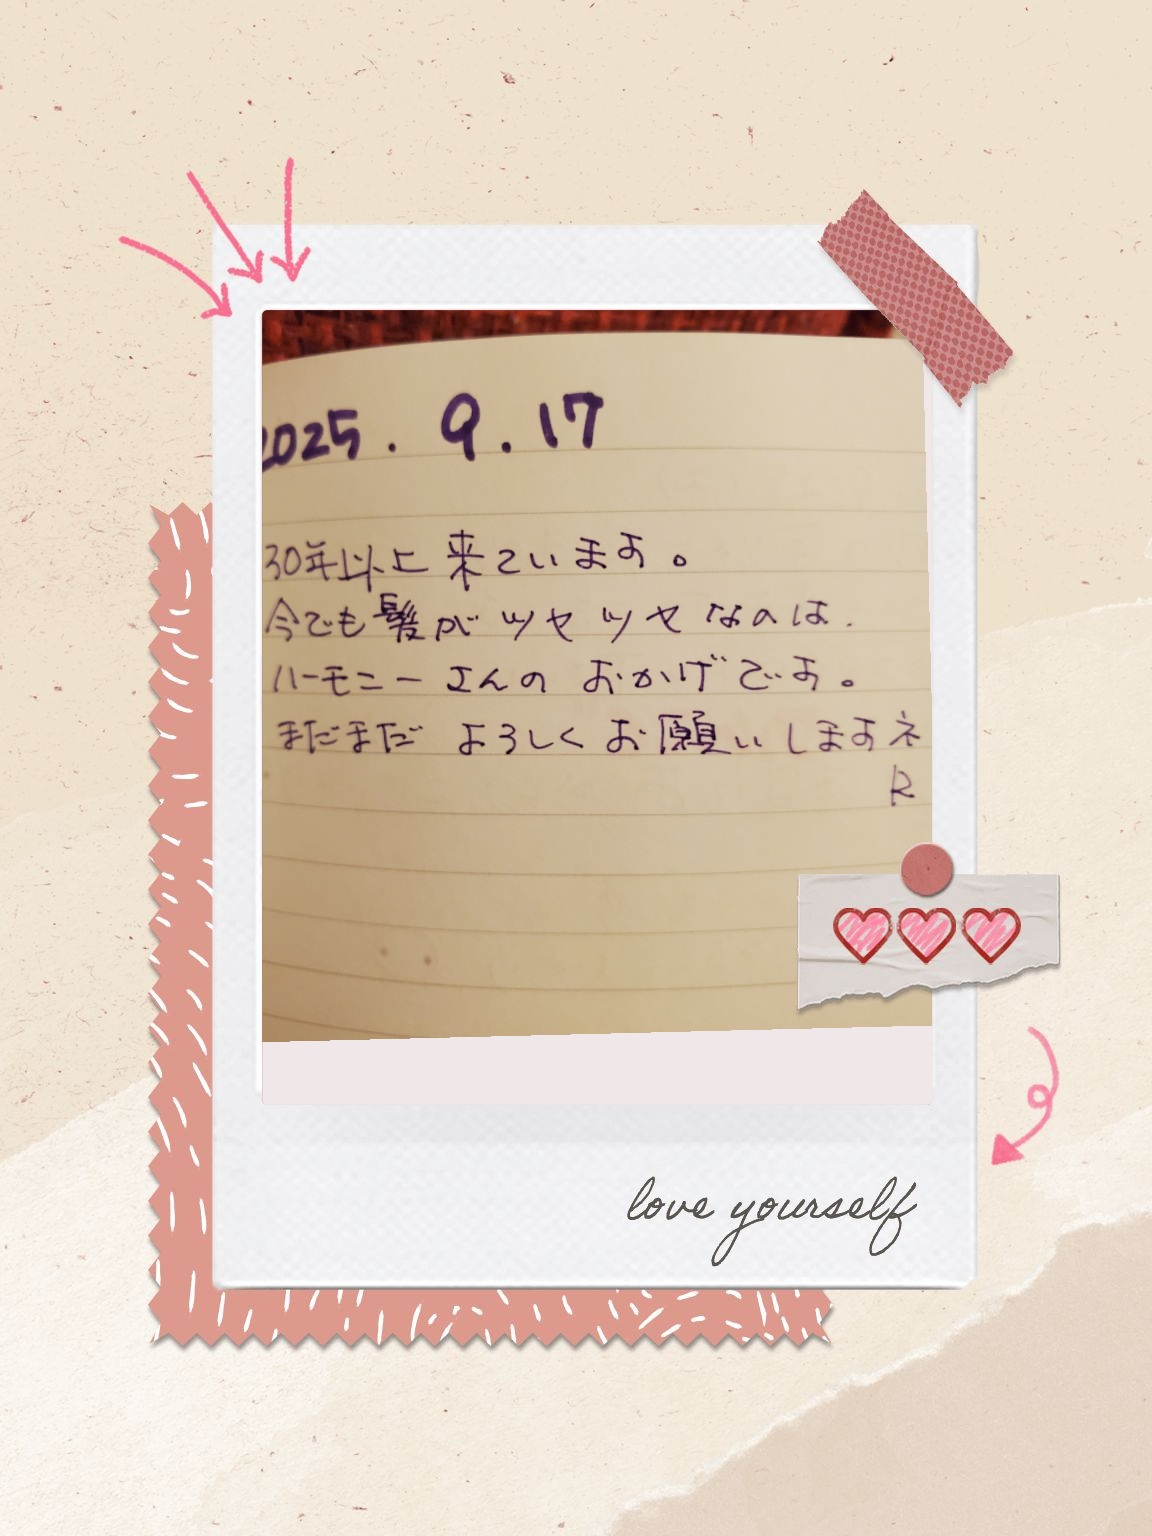 2025. 9. 17
30年以上 来ています。
今でも髪が ツヤツヤなのは.
ハーモニーさんの おかげです。
まだまだ よろしく お願いしますネ
R
love yourself